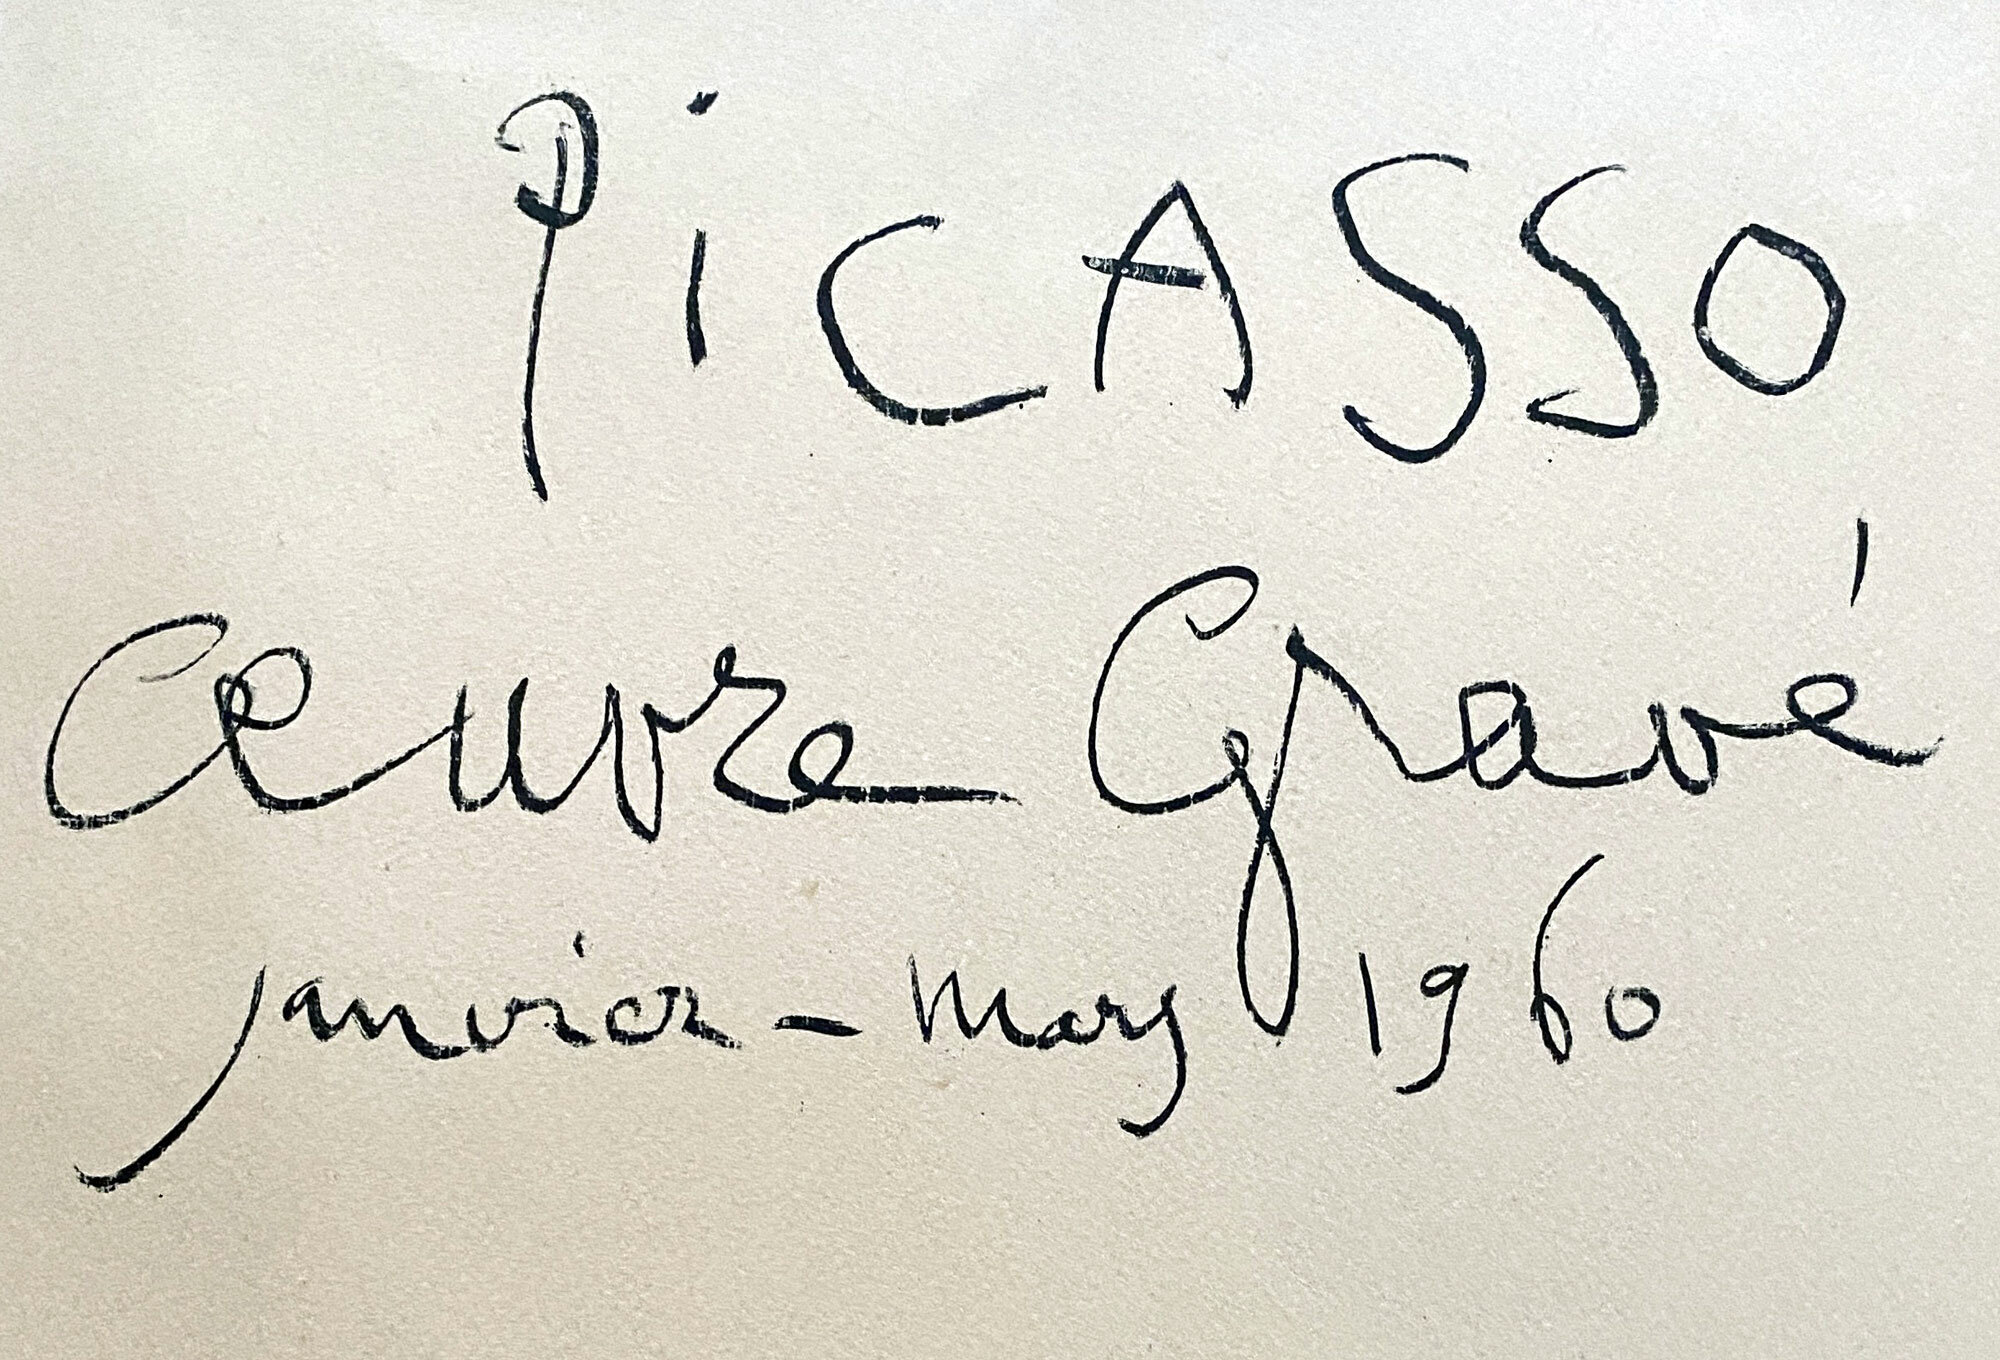 PiCASSO
Œuvre Gravé
janvier - mars 1960